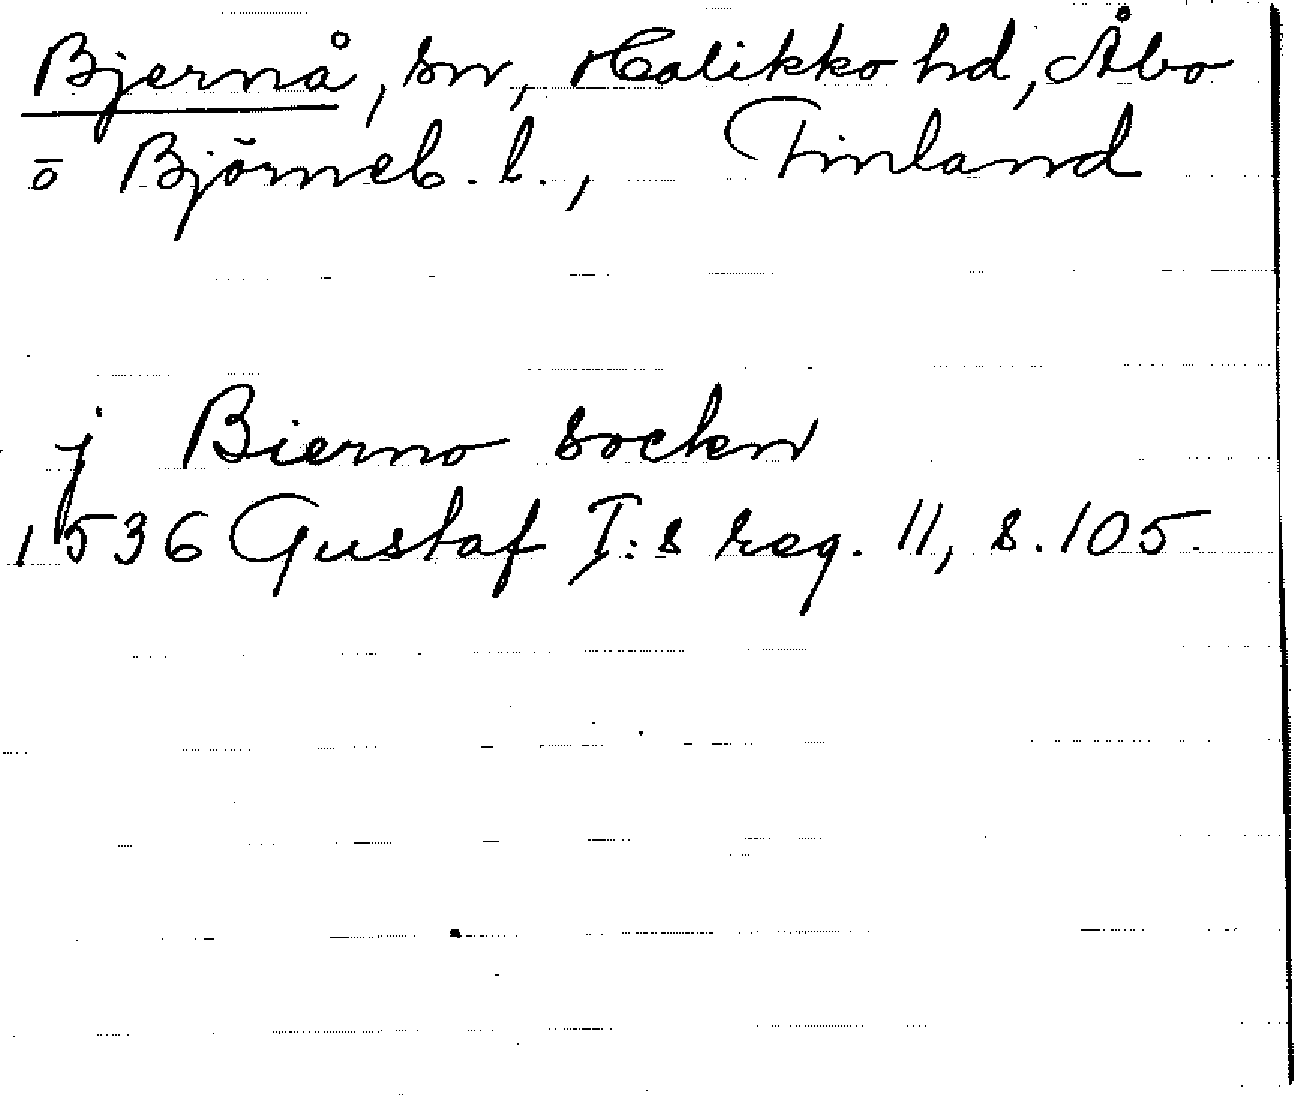 Bjernå, sn, Halikko hd, Åbo
o Björneb. l., Finland
j Bierno sockn
1536 Gustaf I:s reg. 11, s. 105.